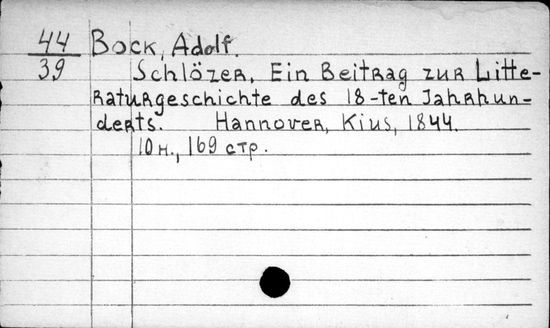 44 Bock, Adolf.
39 Schlözer. Ein Beitrag zur Litte-
raturgeschichte des 18-ten Jahrhun-
derts. Hannover, Kius, 1844.
10 н., 169 стр.